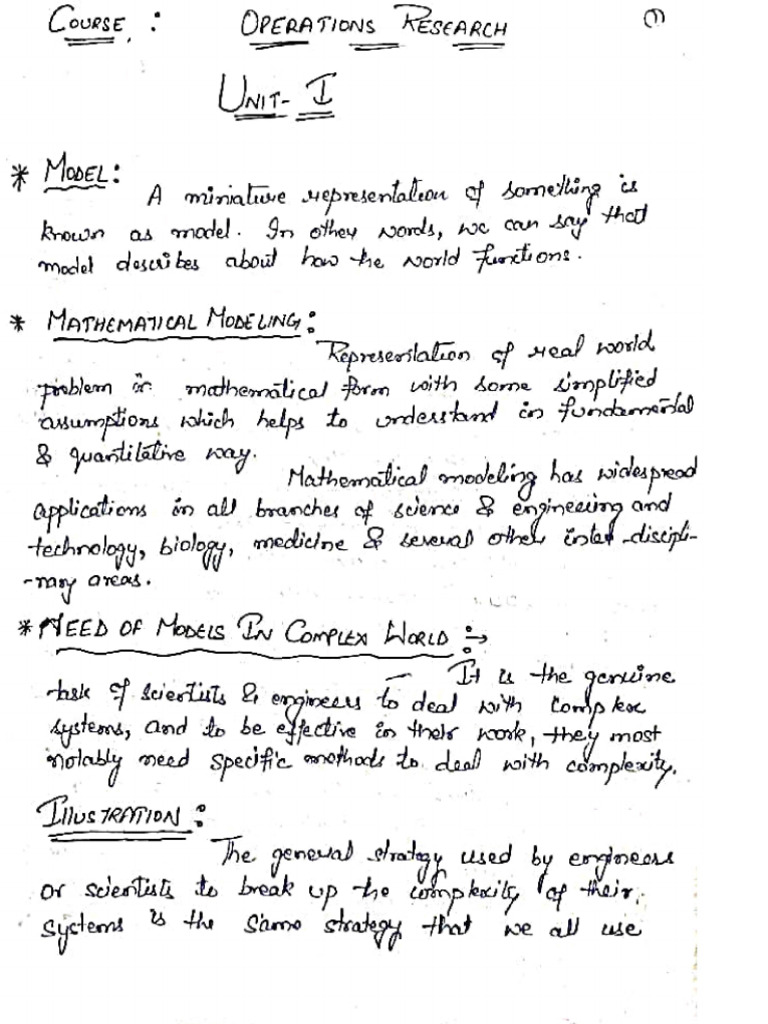 COURSE : OPERATIONS RESEARCH (1)
UNIT- I
* MODEL:
A miniature representation of something is
known as model. In other words, we can say that
model describes about how the world functions.
* MATHEMATICAL MODELING:
Representation of real world
problem in mathematical form with some simplified
assumptions which helps to understand in fundamental
& quantitative way.
Mathematical modeling has widespread
applications in all branches of science & engineering and
technology, biology, medicine & several other inter-discipli-
-nary areas.
* NEED OF MODELS IN COMPLEX WORLD :→
It is the genuine
task of scientists & engineers to deal with complex
systems, and to be effective in their work, they most
notably need specific methods to deal with complexity.
ILLUSTRATION :
The general strategy used by engineers
or scientists to break up the complexity of their
systems is the same strategy that we all use